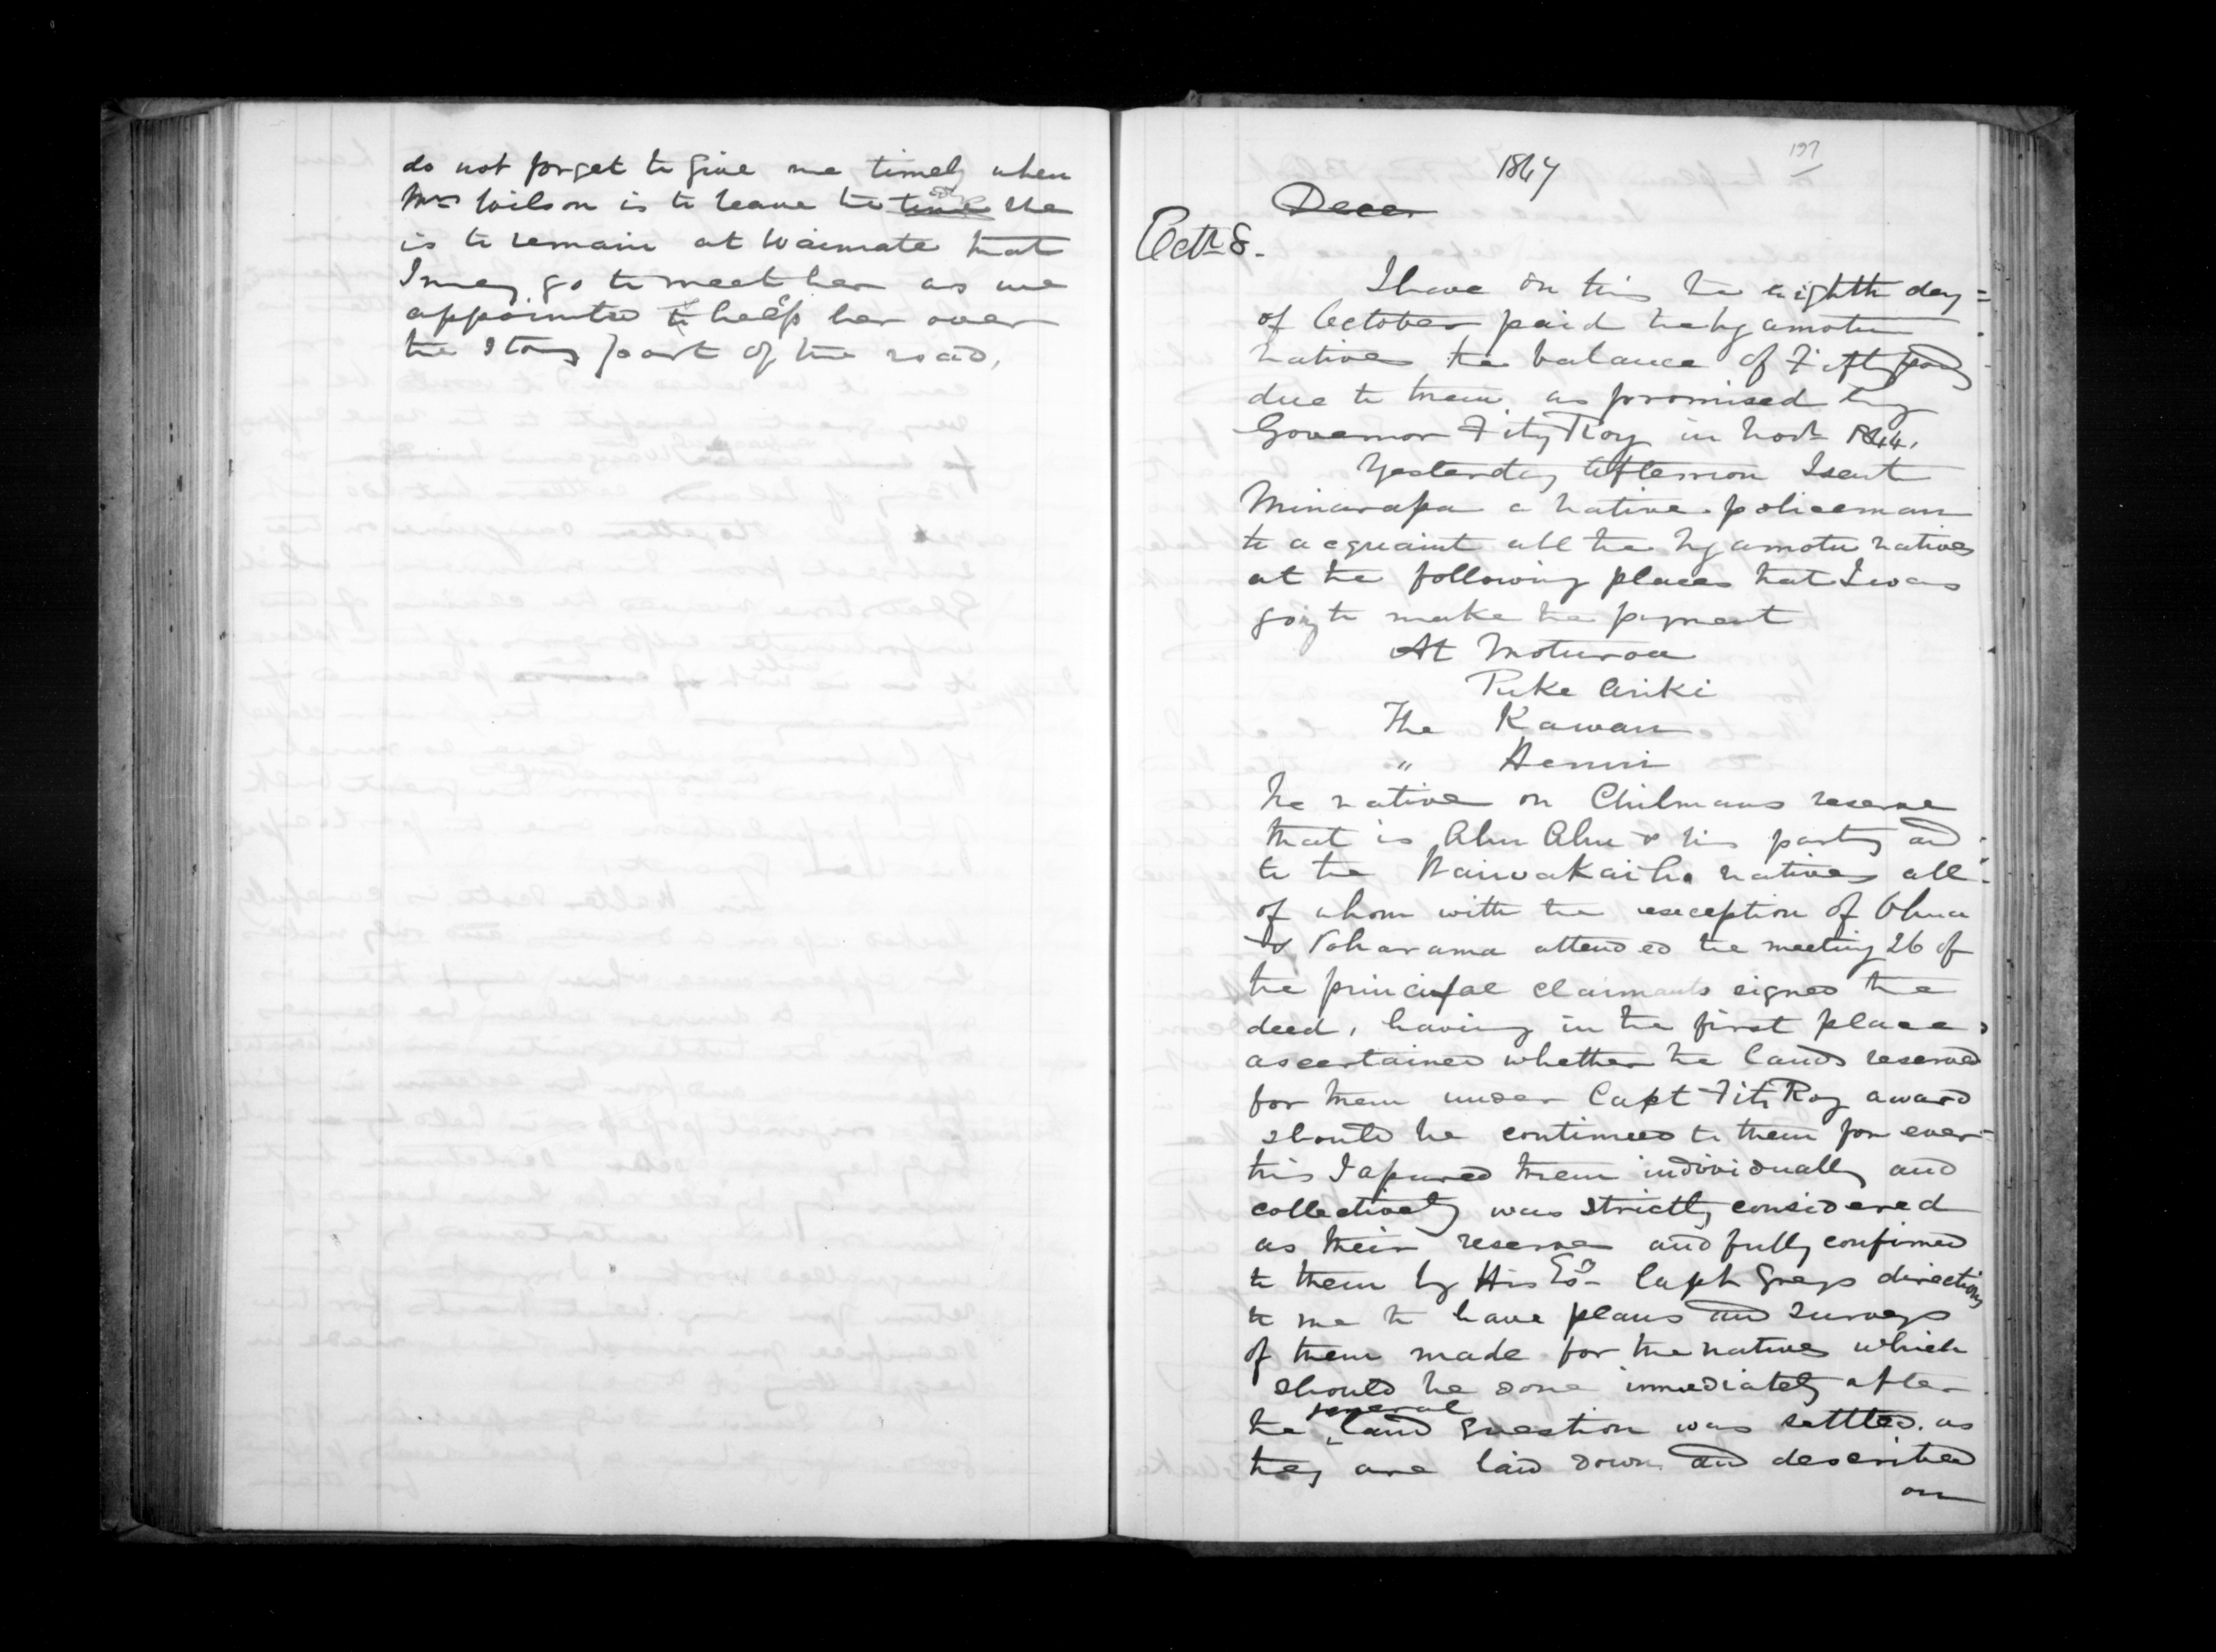 do not forget to give me timely when
Mrs Wilson is to leave the time she
is to remain at Waimate that
I may go to meet her as we
appointed to help her over
the stony part of the road,
197
1847
Decer
Octr 8.
I have on this the eighth day
of October paid the Ngamotu
natives the balance of Fifty pounds
due to them as promised by
Governor FitzRoy in Novr 1844.
Yesterday afternoon I sent
Minarapa a native policeman
to acquaint all the Ngamotu natives
at the following places that I was
going to make the payment
At Moturoa
Puke Ariki
The Kawau
" Henui
the native on Chilmans reserve
that is Ahu Ahu & his party and
to the Waiwakaiho natives all
of whom with the exception of
& Toharama attended the meeting 26 of
the principal claimants signed the
deed, having in the first place
ascertained whether the lands reserved
for them under Capt FitzRoy award
should be continued to them for ever
this I assured them individually and
collectively was strictly considered
as their reserve and fully confirmed
to them by His Ex Capt Greys directions
to me to have plans and surveys
of them made for the natives which
should be done immediately after
the general land question was settled. as
they are laid down and described
on